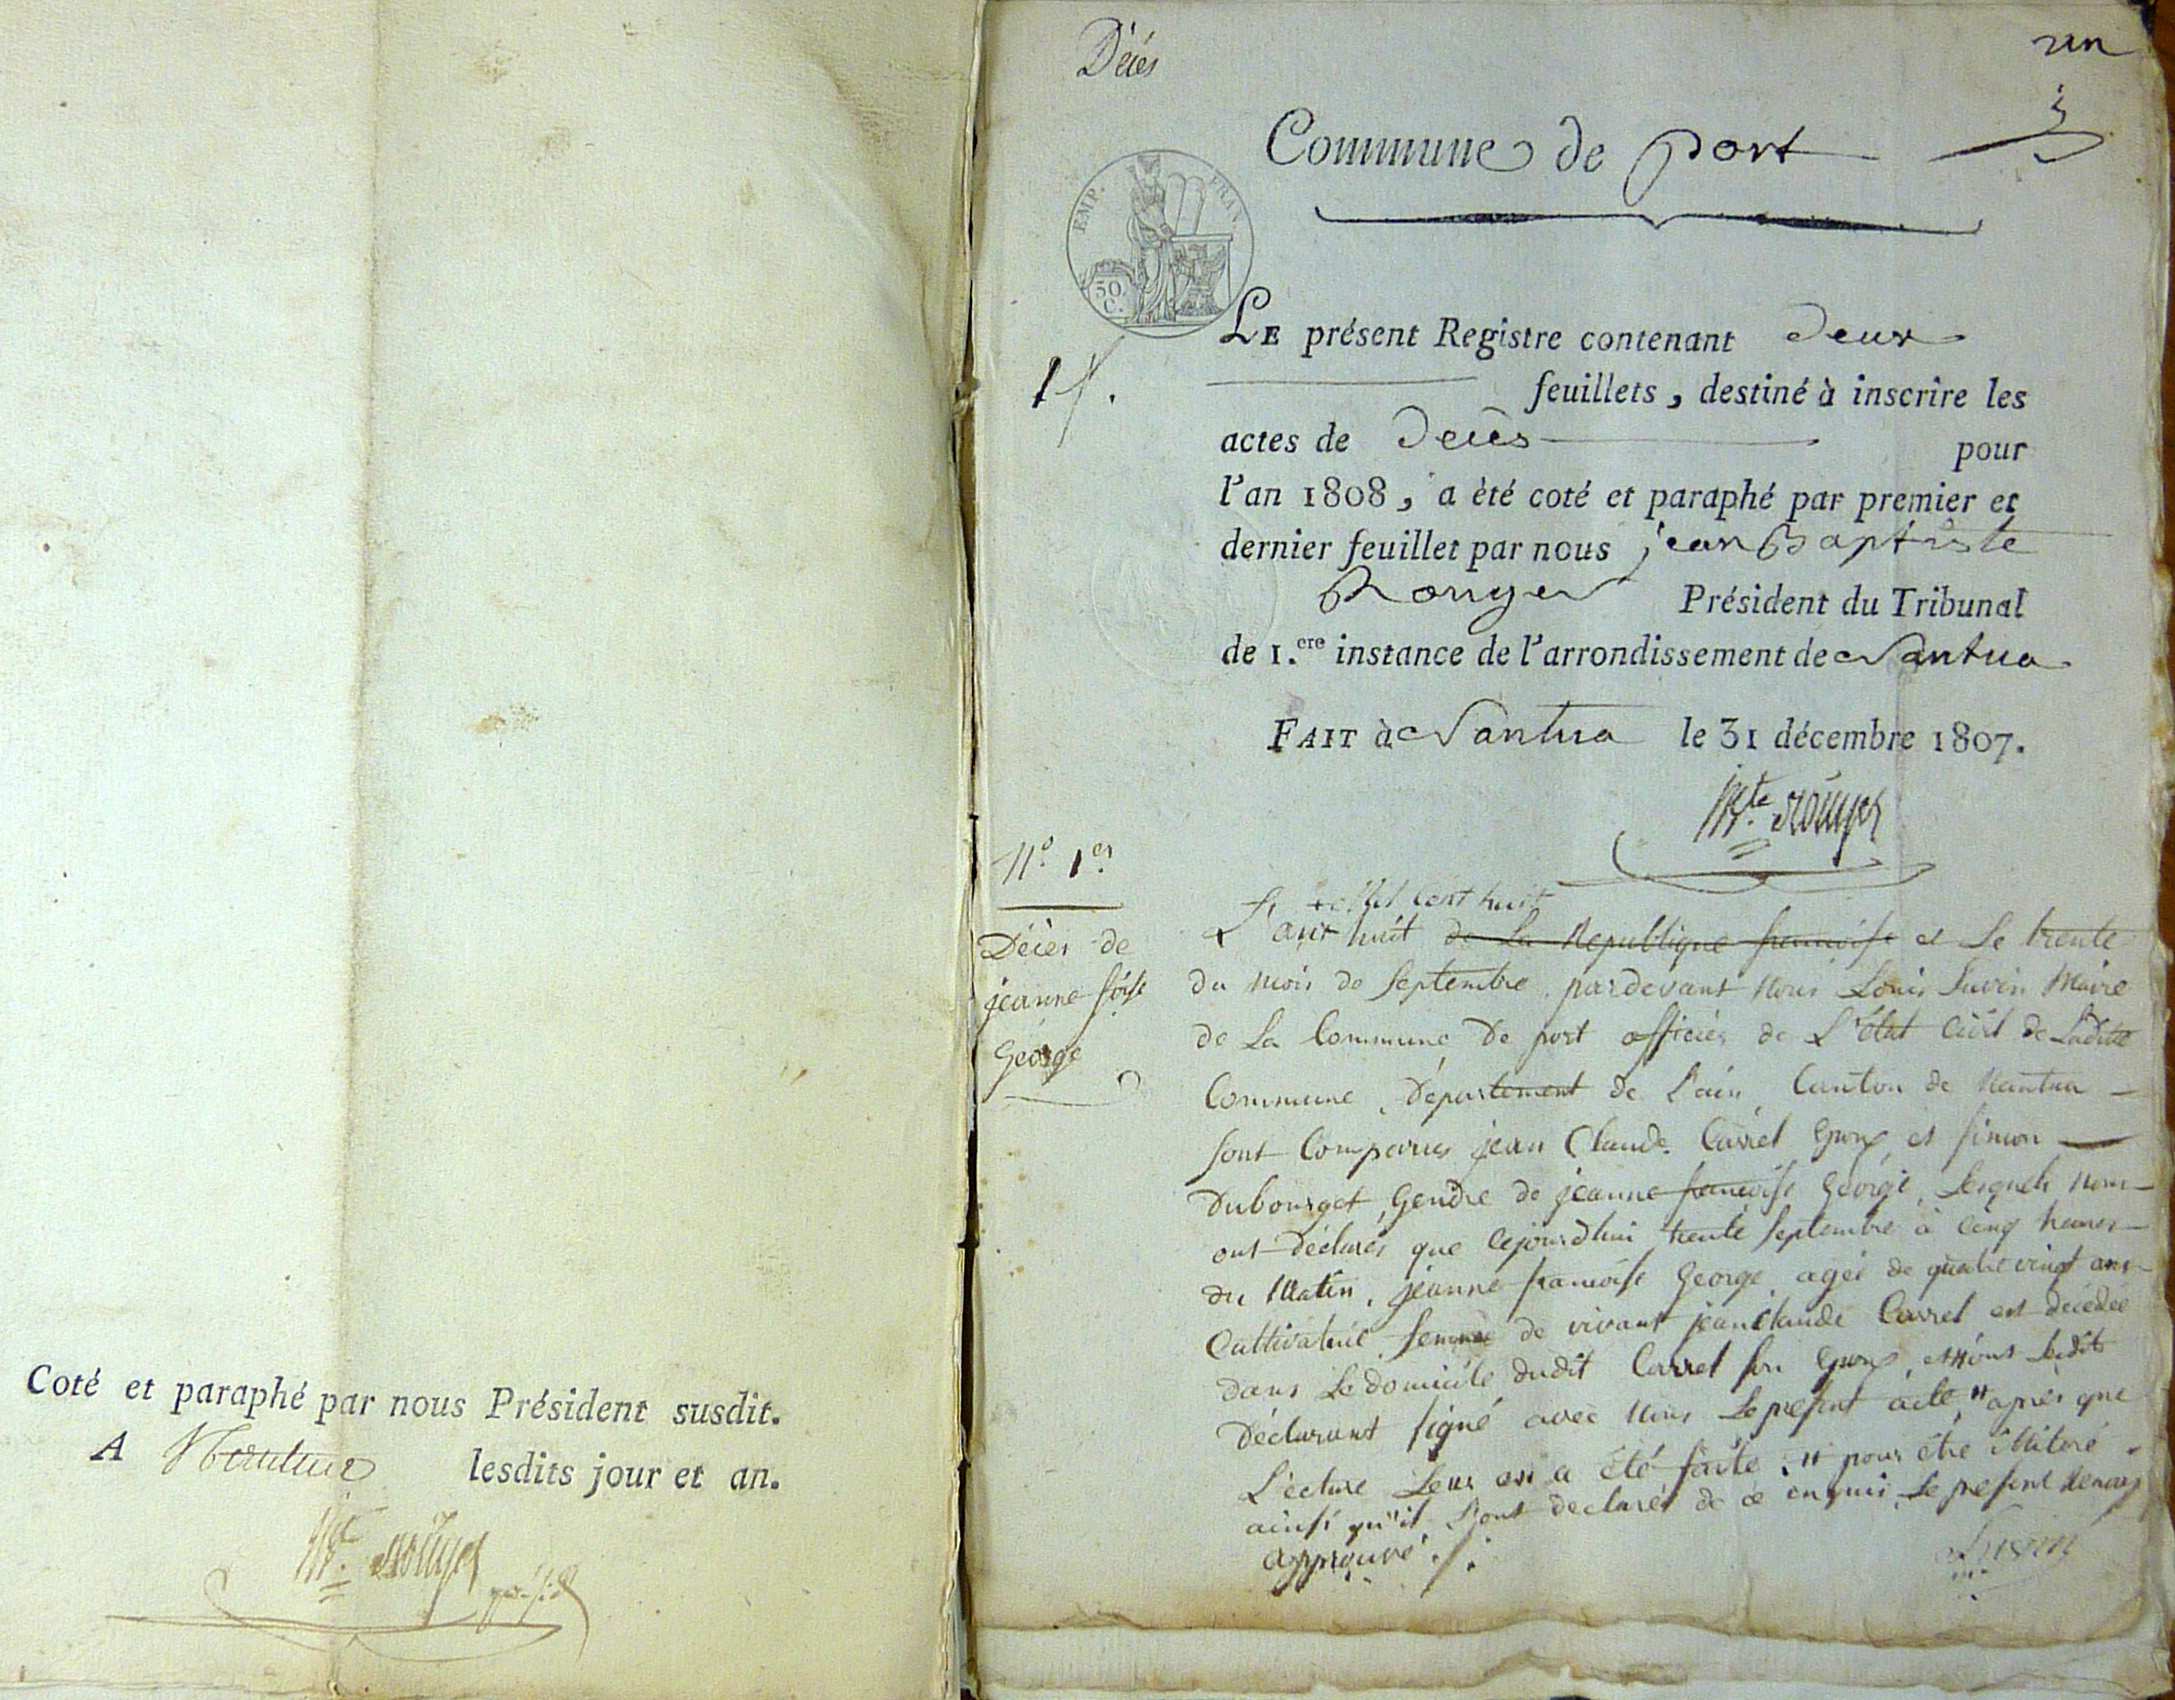 Coté et paraphé par nous Président susdit.
A Nantua lesdits jour et an.
Bte. Rouyer
Décès
un
Commune de port
EMP. FRAN.
50 C.
LE présent Registre contenant deux
feuillets, destiné à inscrire les
actes de Décès pour
l'an 1808, a été coté et paraphé par premier et
dernier feuillet par nous jean Baptiste
Rouyer Président du Tribunal
de 1.ere instance de l'arrondissement de Nantua
FAIT à Nantua le 31 décembre 1807.
Bte. Rouyer
N.° 1er.
Décès de
jeanne foise
George
+ mil cent huit
L'an huit de La Republique francoise et Le trente
du mois de Septembre pardevant Nous Louis Maire
de La Commune De port officier de L'état Civil de Ladite
Commune, Département de L'ain, Canton de Nantua
sont Comparus jean Claude Carrel et simon
Dubourget, Gendre de jeanne francoise George, Lesquels nous
ont déclarés que Cejourdhui trente Septembre à Cinq heures
du Matin, jeanne francoise George agée de quatre vingt ans
Cultivatrice femme de vivant jean Claude Carrel est décédée
dans Le domicile dudit Carrel son et nous Ledit
Déclarant signé avec Nous Le present acte après que
Lecture Leur en a été faite, pour être illiteré
ainsi qu'il L'ont declarés de ce enquis Le present
approuvé